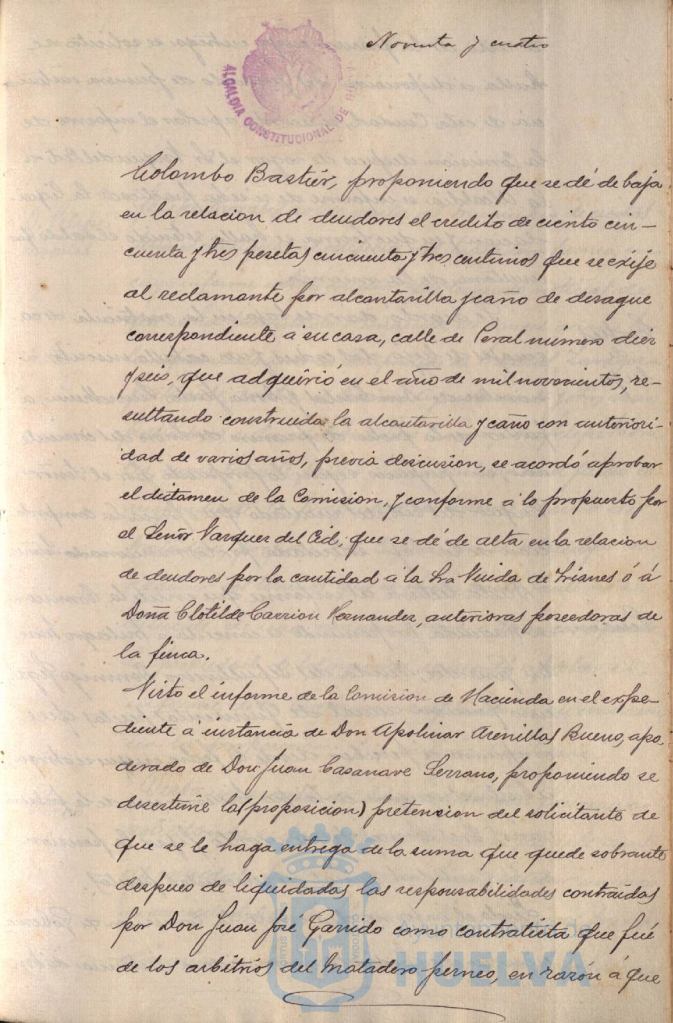 Noventa y cuatro
ALCALDIA CONSTITUCIONAL DE
Colombo Bastier, proponiendo que se dé de baja
en la relacion de deudores el credito de ciento cin-
cuenta y tres pesetas cincuenta y tres centimos que se exije
al reclamante por alcantarilla y caño de desague
correspondiente á su casa, calle de Peral número diez
y seis, que adquirió en el año de mil novecientos, re-
sultando construida la alcantarilla y caño con anteriori-
dad de varios años, previa discusion, se acordó aprobar
el dictamen de la Comision, y conforme á lo propuesto por
el Señor Vazquez del Cid, que se dé de alta en la relacion
de deudores por la cantidad á la Sra Viuda de Trianes ó á
Doña Clotilde Carrion Hernandez, anteriores poseedoras de
la finca.
Visto el informe de la Comision de Hacienda en el expe-
diente á instancia de Don Apolinar Arenillas Bueno, apo-
derado de Don Juan Casanave Serrano, proponiendo se
desestime la (proposicion) pretencion del solicitante de
que se le haga entrega de la suma que quede sobrante
despues de liquidadas las responsabilidades contraidas
por Don Juan José Garrido como contratista que fué
de los arbitrios del Matadero perneo, en razón á que
HUELVA